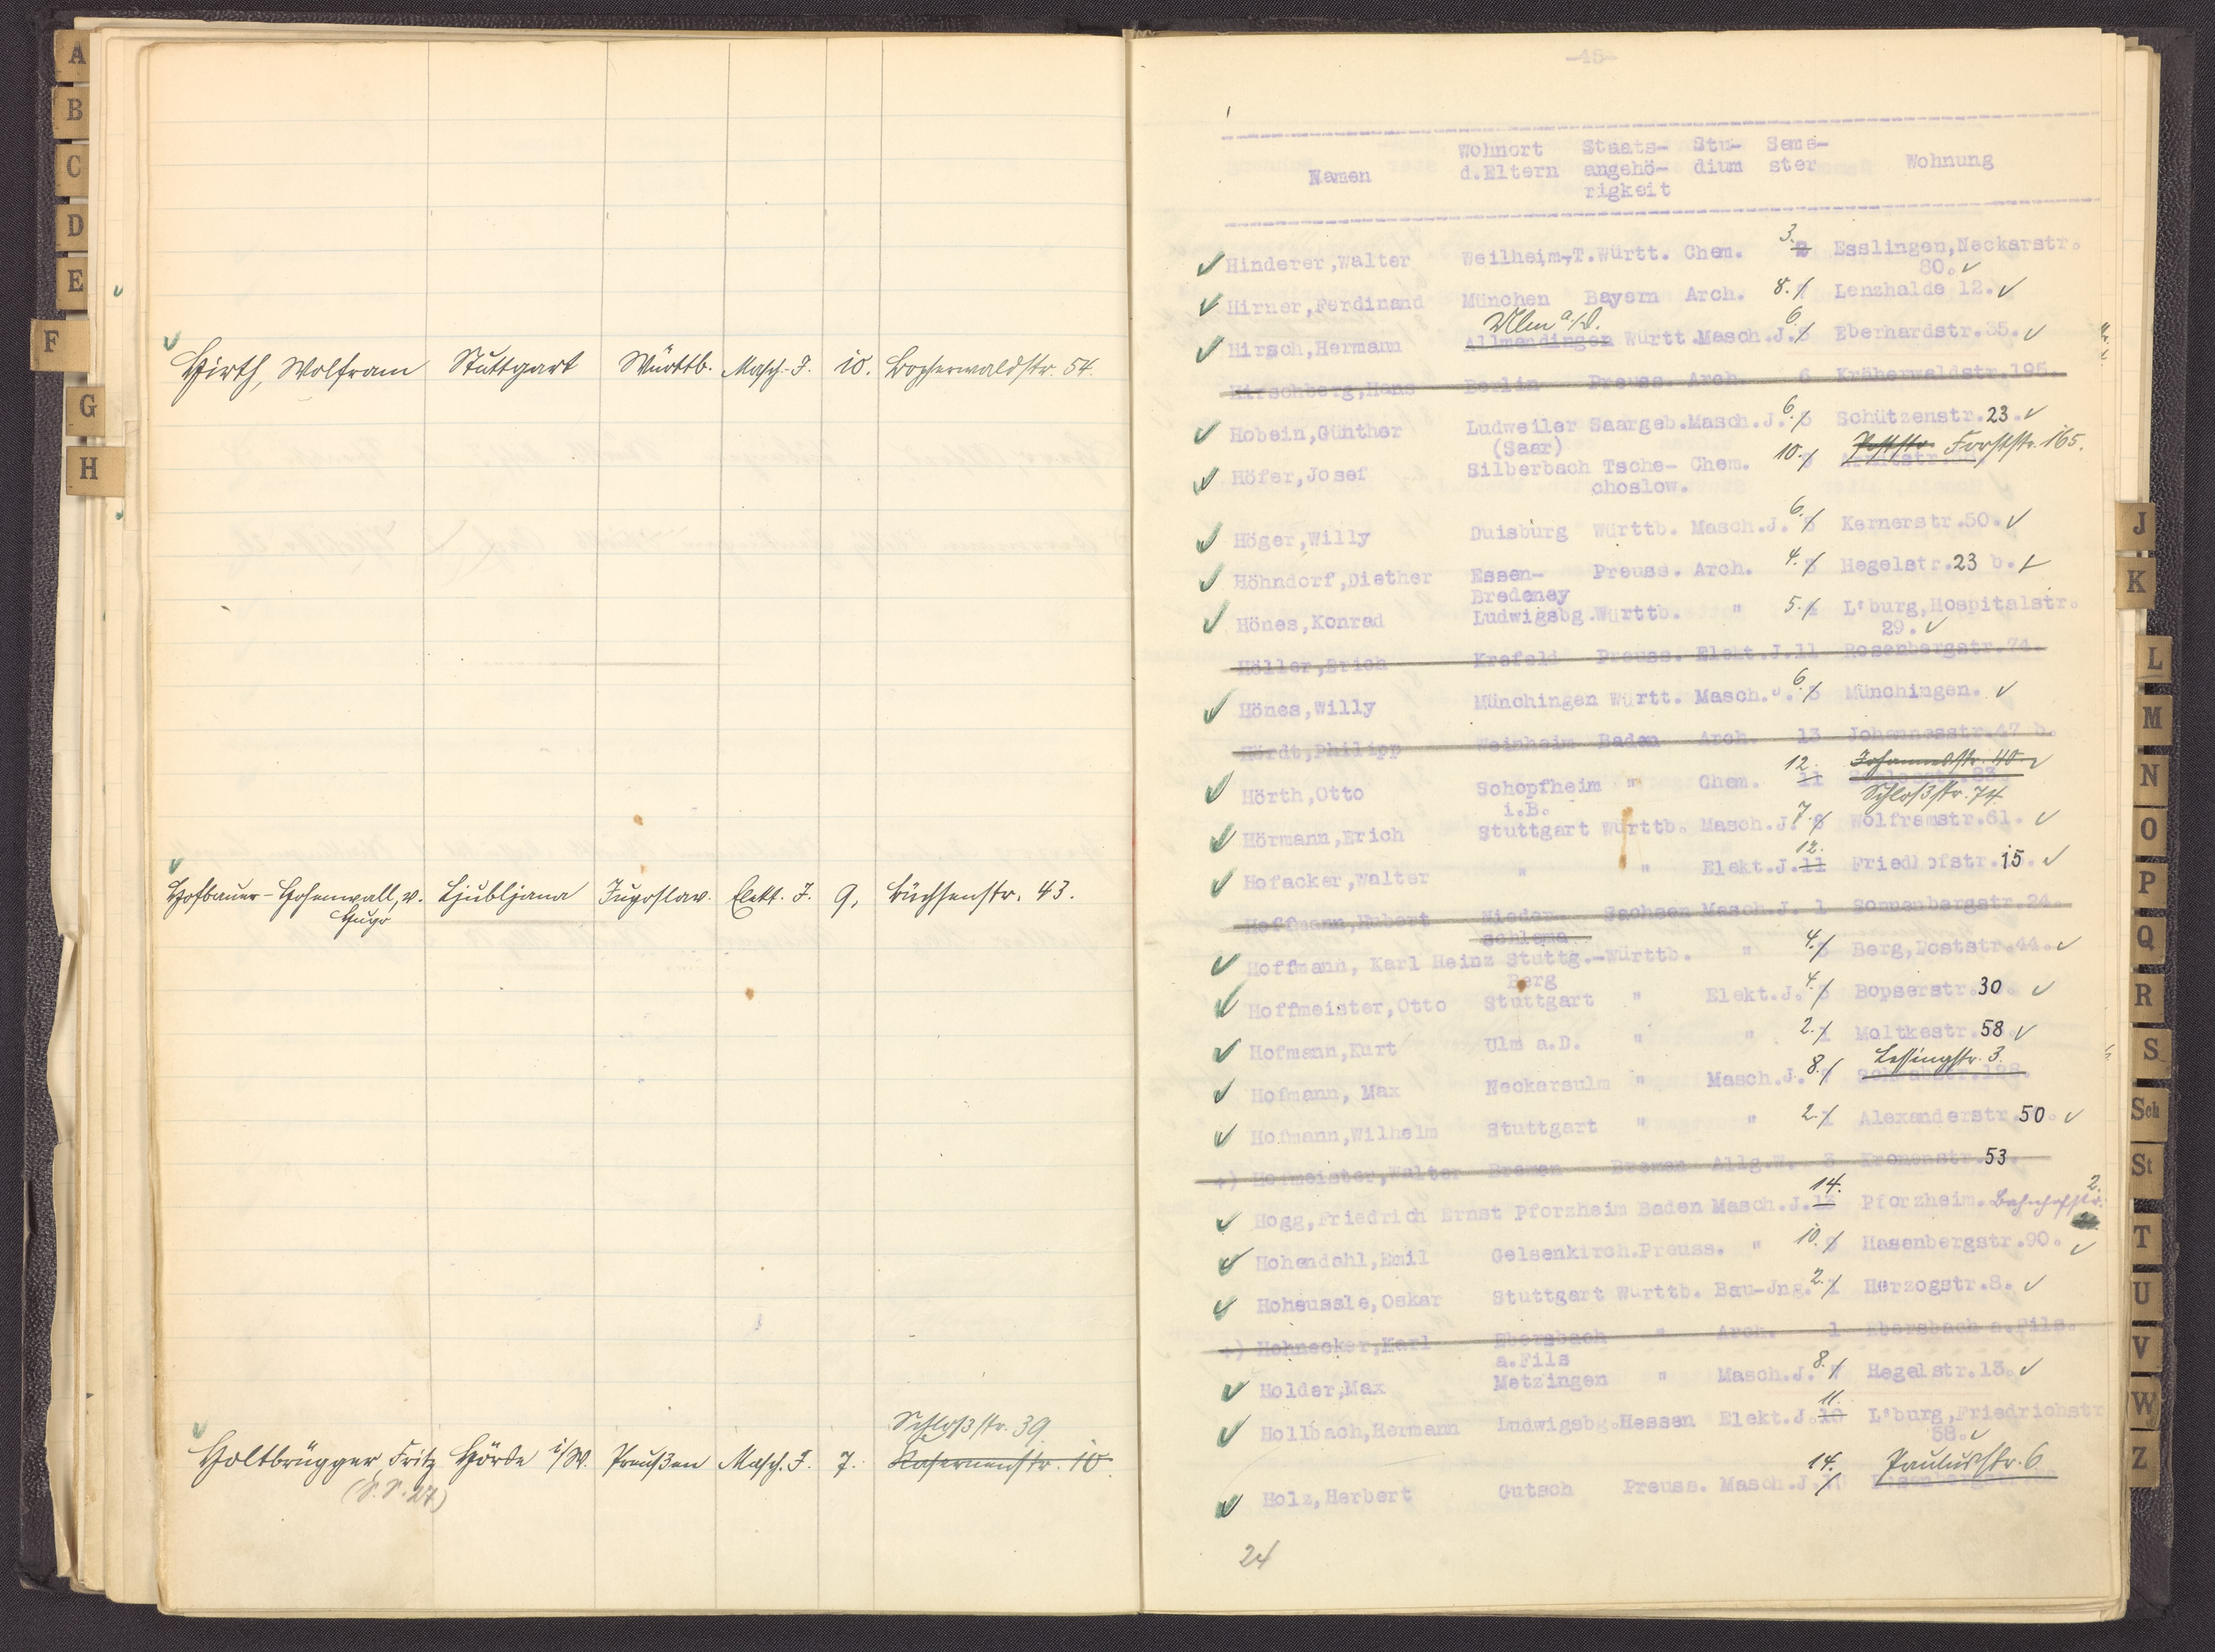 A
B
C
D
E
F
G
H
Hirth, Wolfram Stuttgart Württb. Masch.-I. 10. Bopserwaldstr. 54.
Hofbauer-Hohenwall, v. Ljubljana Jugoslaw. Elekt. I. 9. Büchsenstr. 43.
Hugo
Schloßstr. 39
Holtbrügger Fritz Hörde i/W. Preußen Masch. I. 7. Kasernenstr. 10.
(S.S. 27)
-45-
Wohnort Staats- Stu- Seme-
Namen d.Eltern angehö- dium ster Wohnung
rigkeit
Hinderer,Walter Weilheim,T.Württ. Chem. 3. 2 Esslingen,Neckarstr.
80.
Hirner,Ferdinand München Bayern Arch. 8. Lenzhalde 12.
Ulm a/D.
Hirsch,Hermann Allmendingen Württ.Masch.J. 6. 5 Eberhardstr.35.
Hirschberg,Hans Berlin Preuss. Arch. 6 Kräherwaldstr.195.
Hobein,Günther Ludweiler Saargeb.Masch.J. 6. 5 Schützenstr.23.
(Saar)
Höfer,Josef Silberbach Tsche- Chem. 10. Forststr. 165.
choslow.
Höger,Willy Duisburg Württb. Masch.J. 6. 5 Kernerstr.50.
Höhndorf,Diether Essen- Preuss. Arch. 4. 3 Hegelstr.23 b.
Bredeney
Hönes,Konrad Ludwigsbg.Württb. " 5. 4 L'burg,Hospitalstr.
29.
Höller,Erich Krefeld Preuss. Elekt.J.11 Rosenbergstr.74.
Hönes,Willy Münchingen Württ. Masch.J. 6. 5 Münchingen.
Hördt,Philipp Weinheim Baden Arch. 13 Johannesstr.47 b.
Johannesstr. 40.
Hörth,Otto Schopfheim " Chem. 12. 11
i.B. Schloßstr. 74.
Hörmann,Erich Stuttgart Württb. Masch.J. 7. 6 Wolframstr.61.
Hofacker,Walter " " Elekt.J. 12. 11 Friedhofstr.15.
Hoffmann,Hubert Nieder- Sachsen Masch.J. 1 Sonnenbergstr.24.
schlema
Hoffmann, Karl Heinz Stuttg.-Württb. " 4. 3 Berg,Poststr.44.
Berg
Hoffmeister,Otto Stuttgart " Elekt.J. 4. 3 Bopserstr.30.
Hofmann,Kurt Ulm a.D. " " 2. 1 Moltkestr.58
Lessingstr. 3.
Hofmann, Max Neckarsulm " Masch.J. 8. 7 Schwabstr.128.
Hofmann,Wilhelm Stuttgart " " 2. 1 Alexanderstr.50.
+) Hofmeister,Walter Bremen Bremen Allg.W. 3 Kronenstr.53.
Hogg,Friedrich Ernst Pforzheim Baden Masch.J. 14. 13 Pforzheim. Bahnhofstr. 2.
Hohendahl,Emil Gelsenkirch.Preuss. " 10. 9 Hasenbergstr.90.
Hoheussle,Oskar Stuttgart Württb. Bau-Jng. 2. 1 Herzogstr.8.
+) Hohnecker,Karl Ebersbach " Arch. 1 Ebersbach a.Fils.
a.Fils
Holder,Max Metzingen " Masch.J. 8. 7 Hegelstr.13.
Hollbach,Hermann Ludwigsbg.Hessen Elekt.J. 11. 10 L'burg,Friedrichstr
58.
Holz,Herbert Gutach Preuss. Masch.J. 14. Paulusstr. 6
24
J
K
L
M
N
O
P
Q
R
S
Sch
St
T
U
V
W
Z